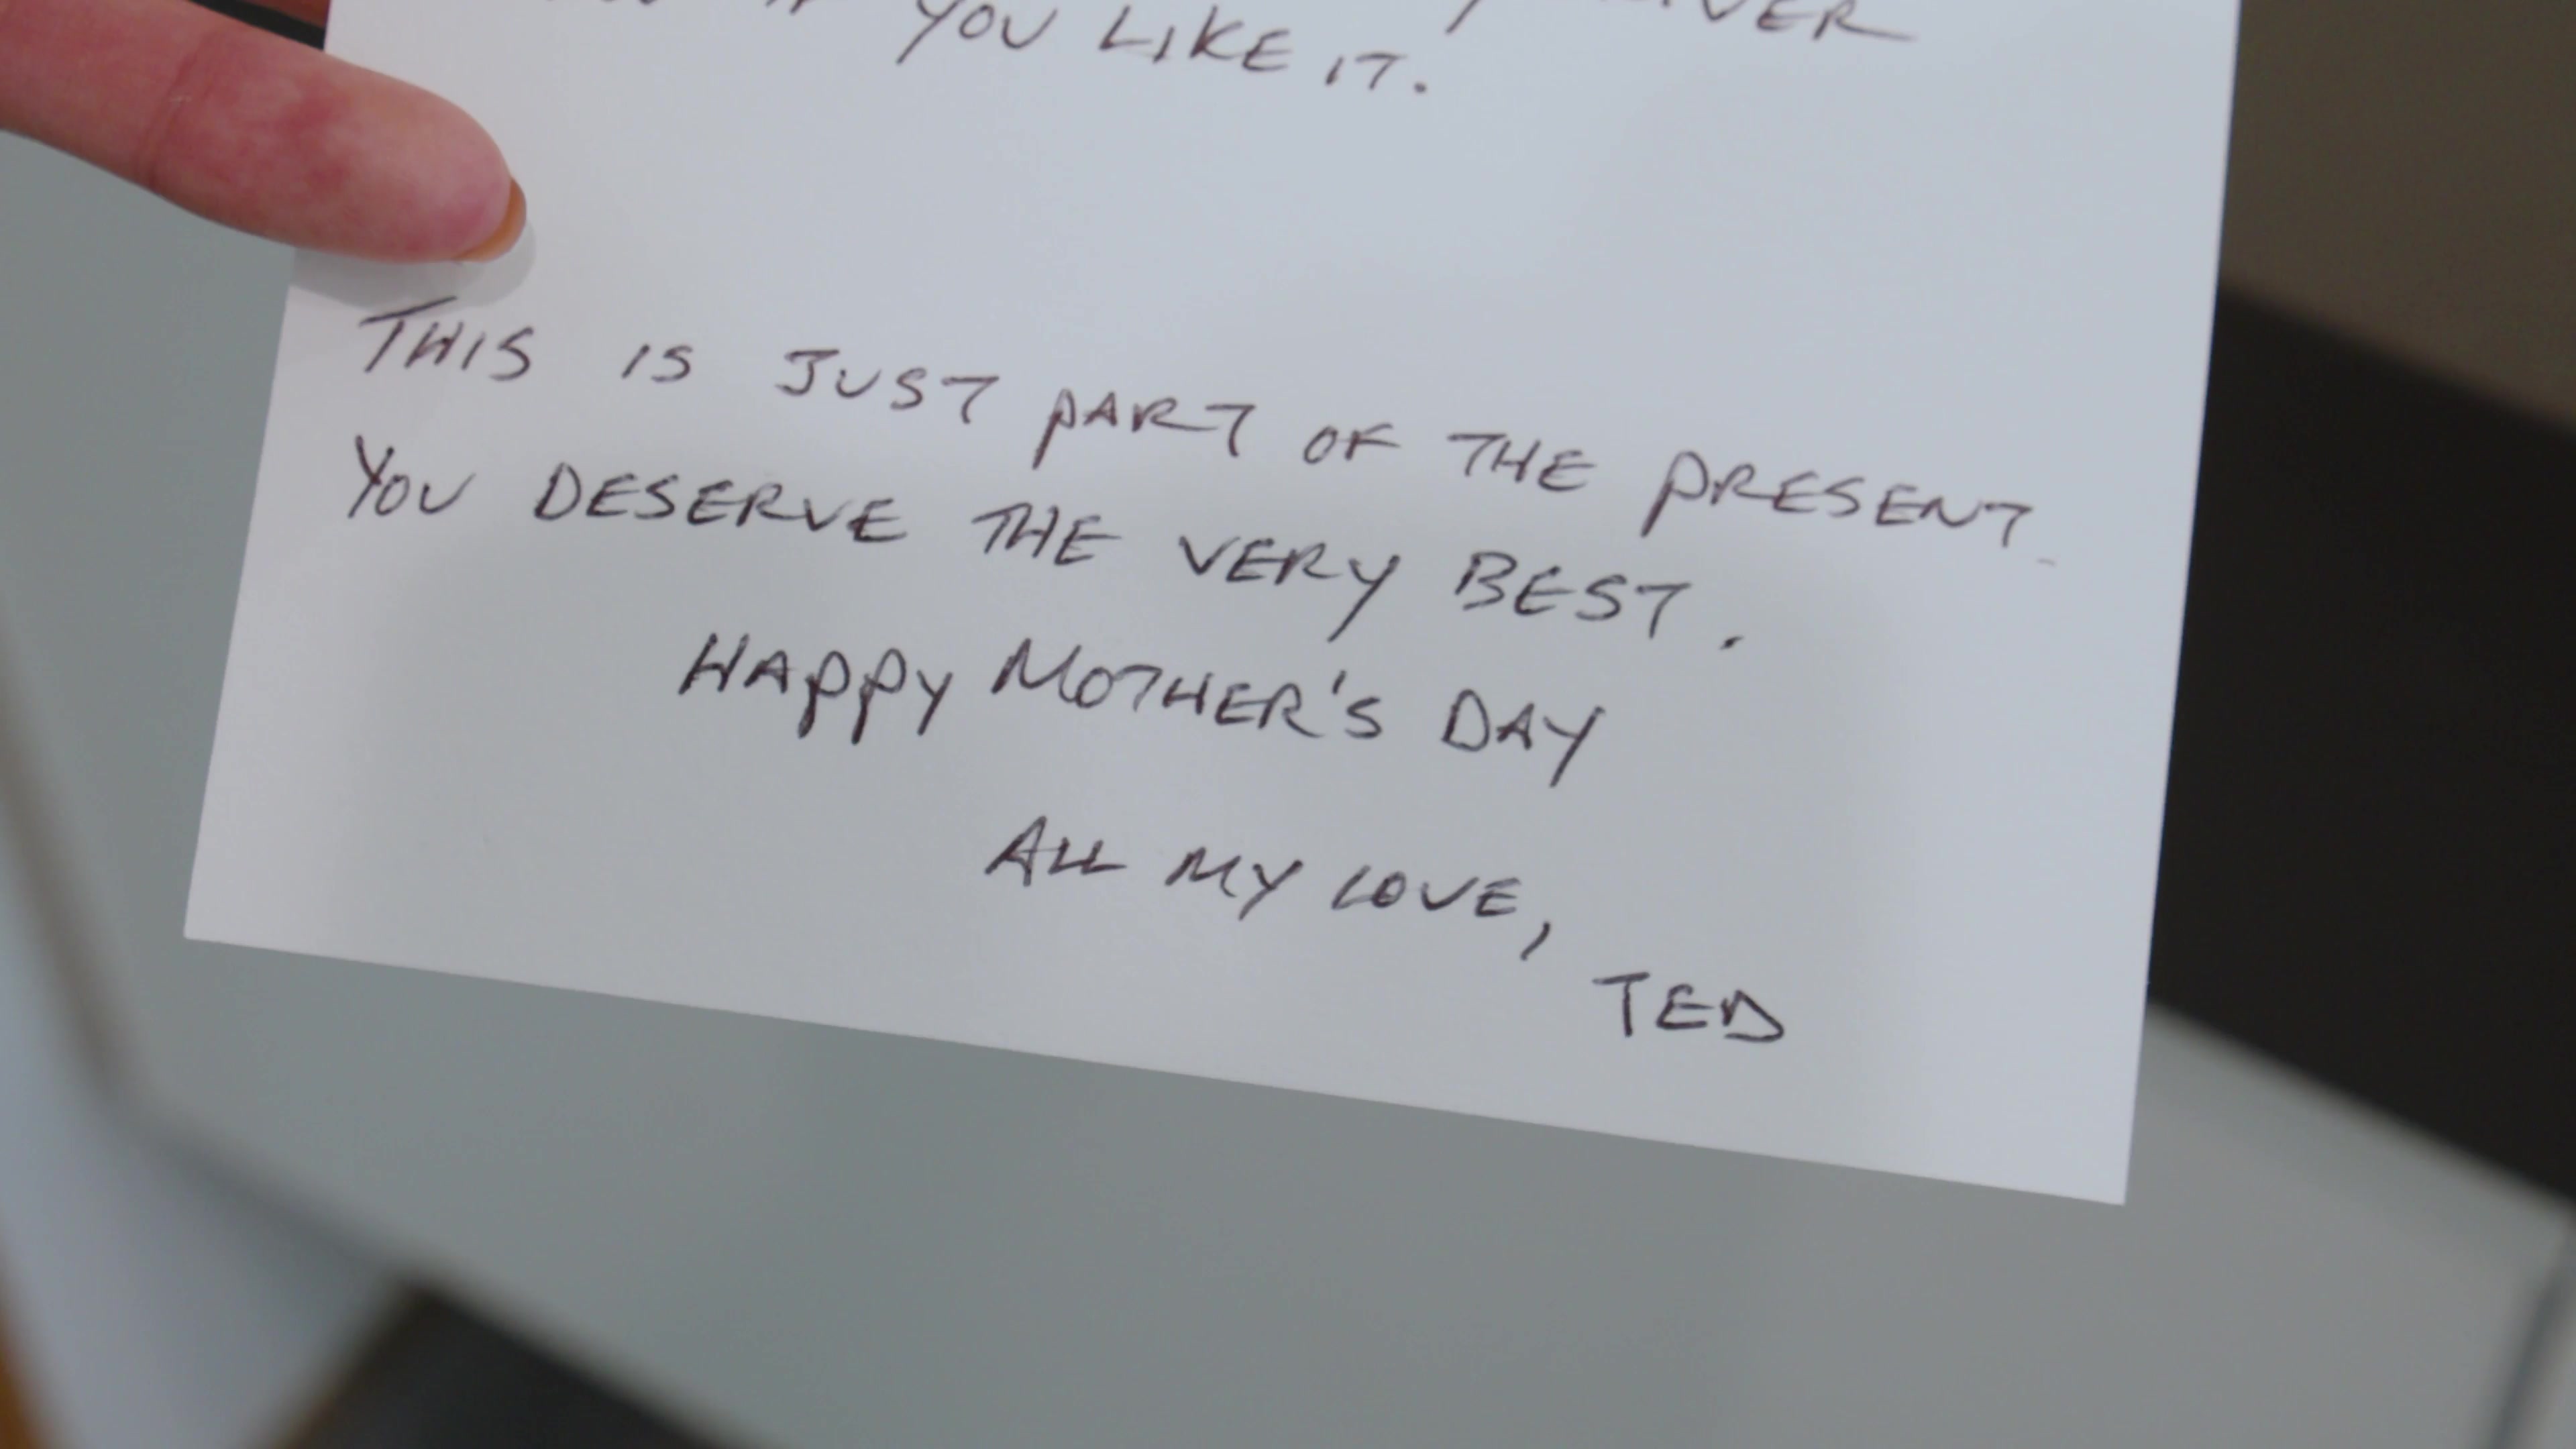 YOU LIKE IT.
THIS IS JUST PART OF THE PRESENT.
YOU DESERVE THE VERY BEST.
HAPPY MOTHER'S DAY
ALL MY LOVE,
TED